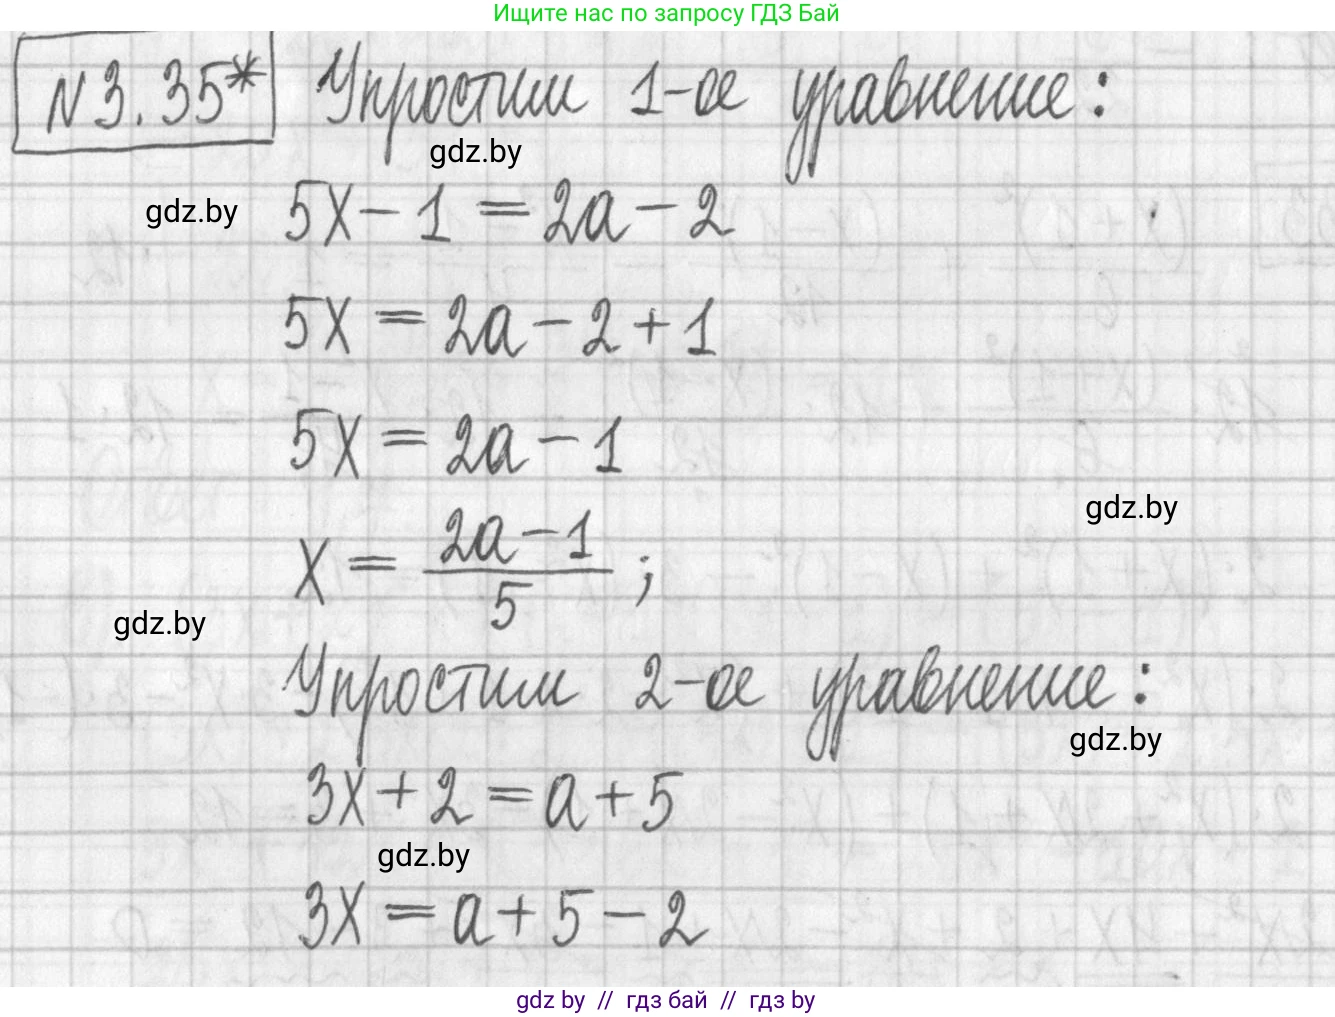 Ищите нас по запросу ГДЗ Бай
N3.35* Упростим 1-ое уравнение:
gdz.by
gdz.by 5x - 1 = 2a - 2
5x = 2a - 2 + 1
5x = 2a - 1
gdz.by
x = (2a - 1)/5 ;
gdz.by
Упростим 2-ое уравнение:
gdz.by
3x + 2 = a + 5
gdz.by
3x = a + 5 - 2
gdz by // гдз бай // гдз by